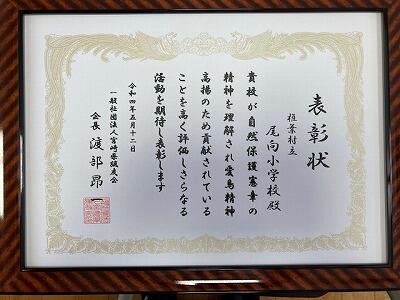 表彰状
椎葉村立
尾向小学校殿
貴校が自然保護憲章の
精神を理解され愛鳥精神
高揚のため貢献されている
ことを高く評価しさらなる
活動を期待し表彰します
令和四年五月十二日
一般社団法人宮崎県猟友会
会長 渡部昂一